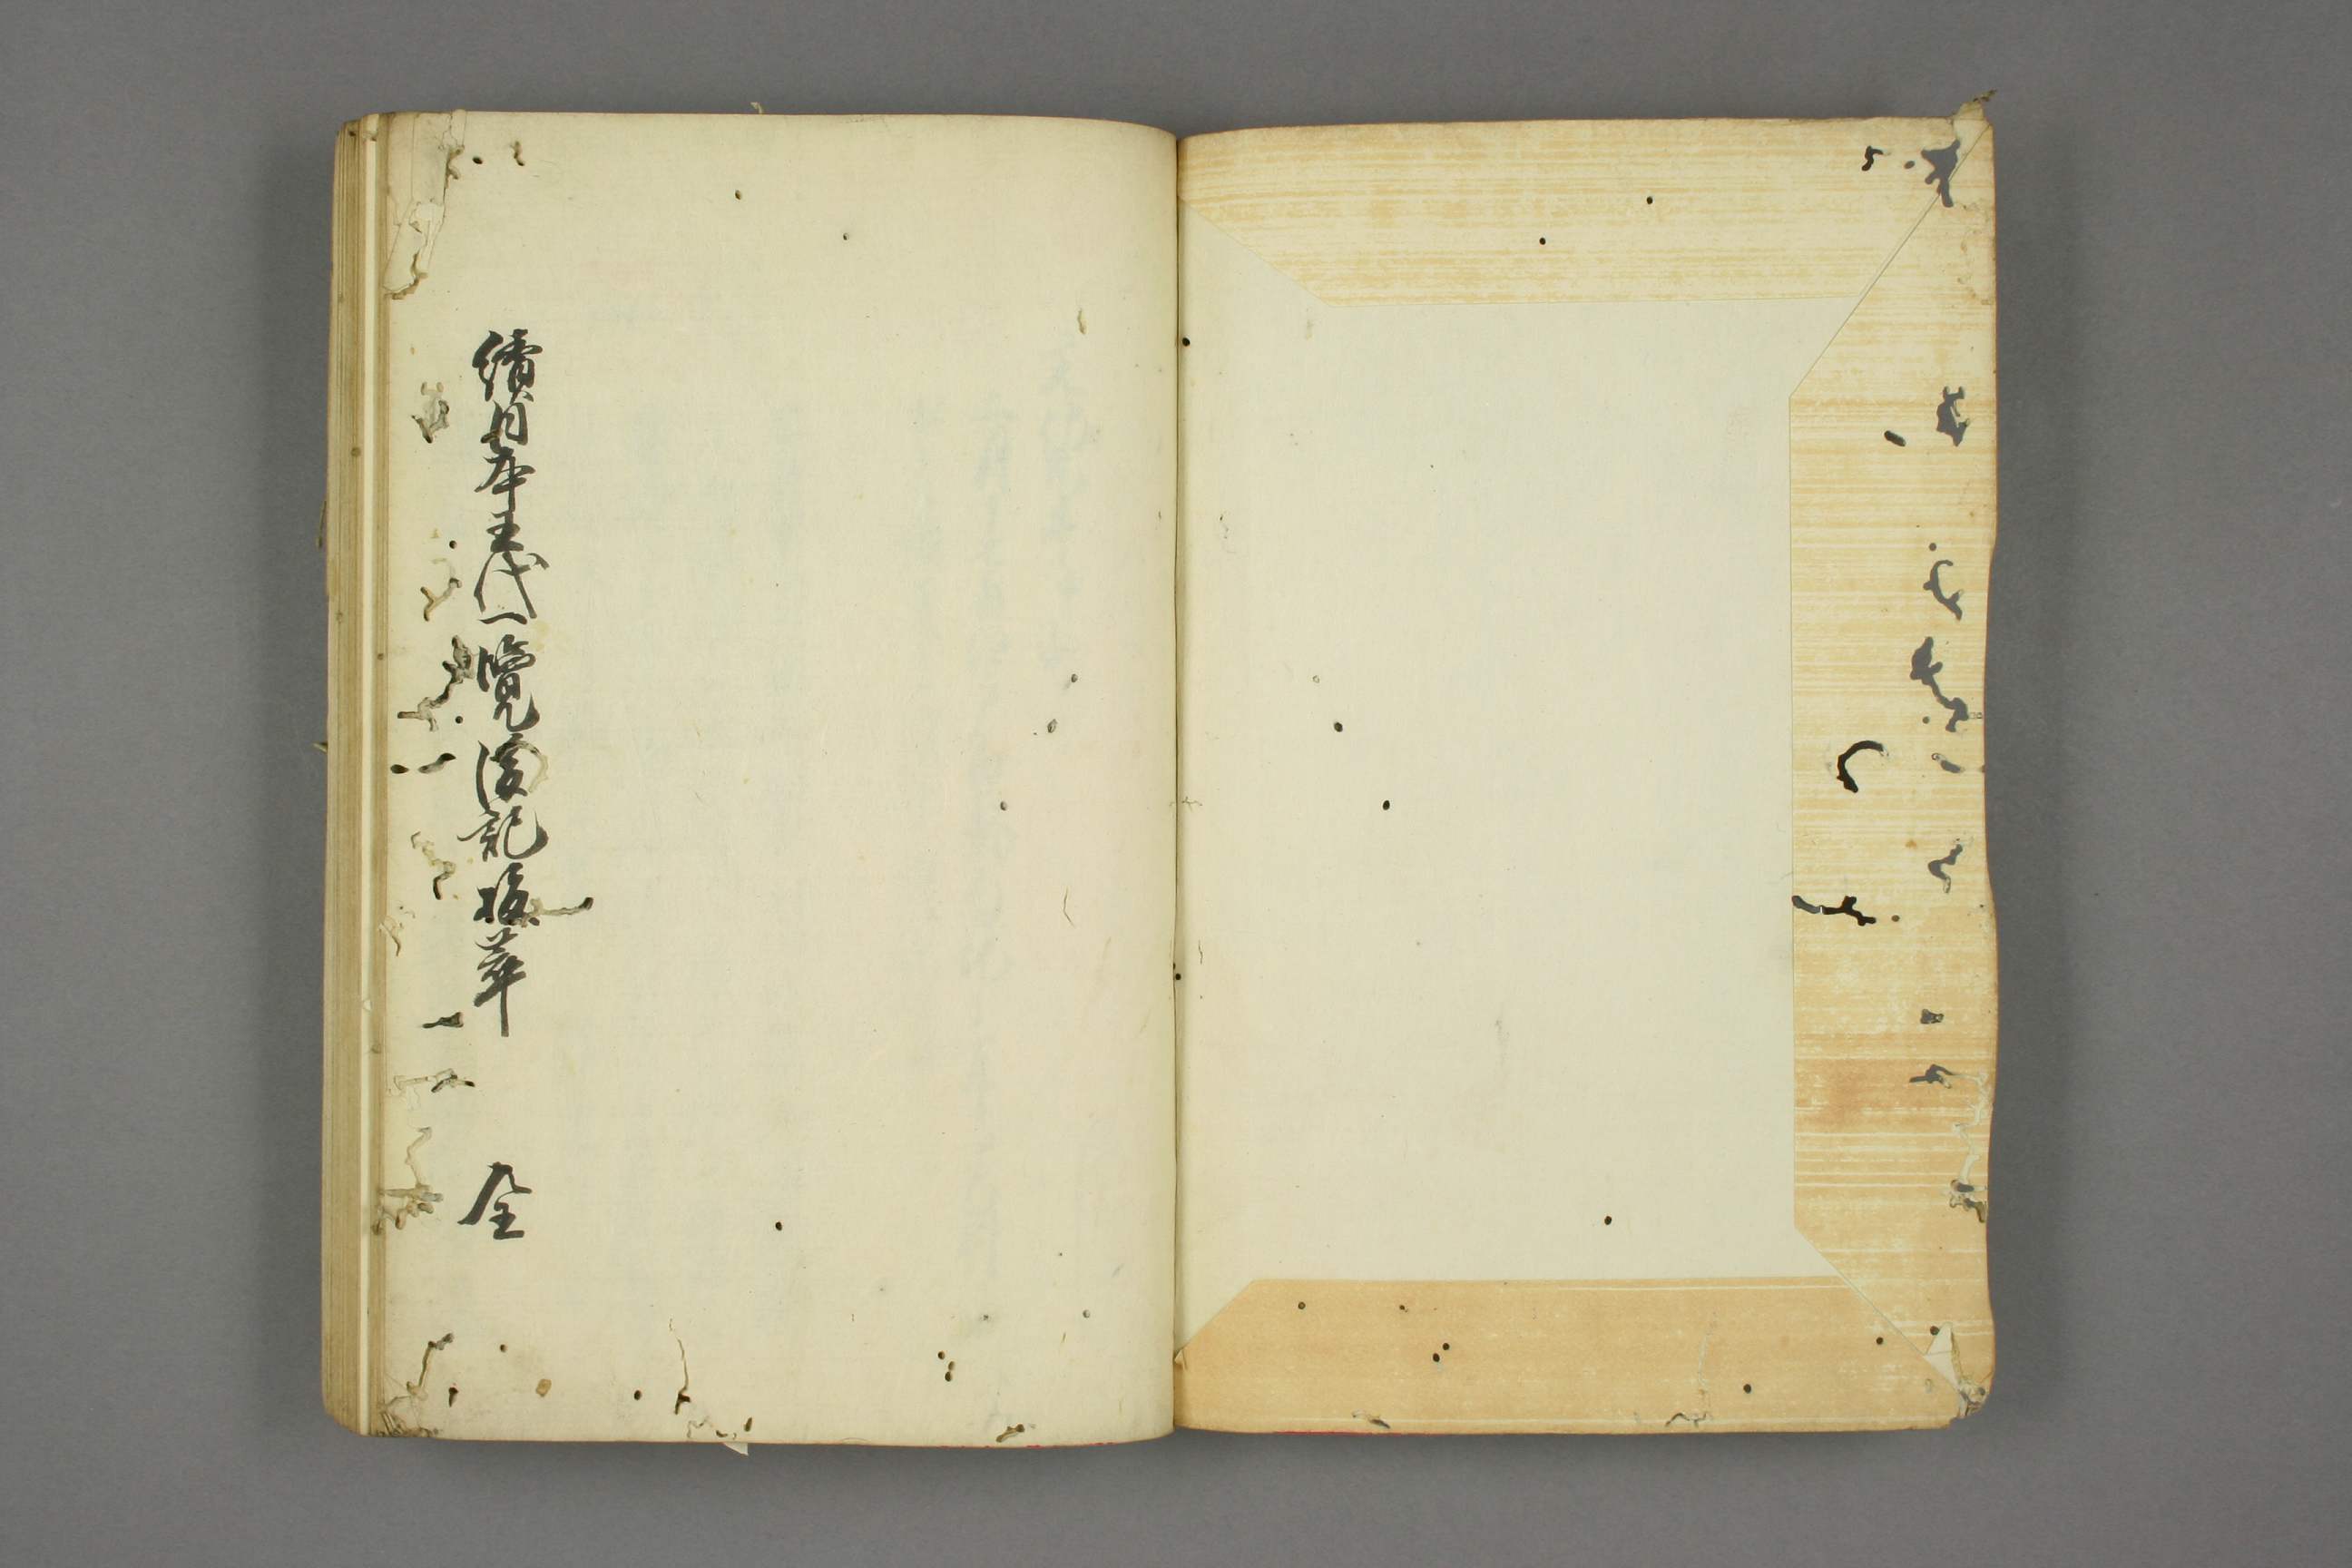 續日本王代一覽後記拔萃　全